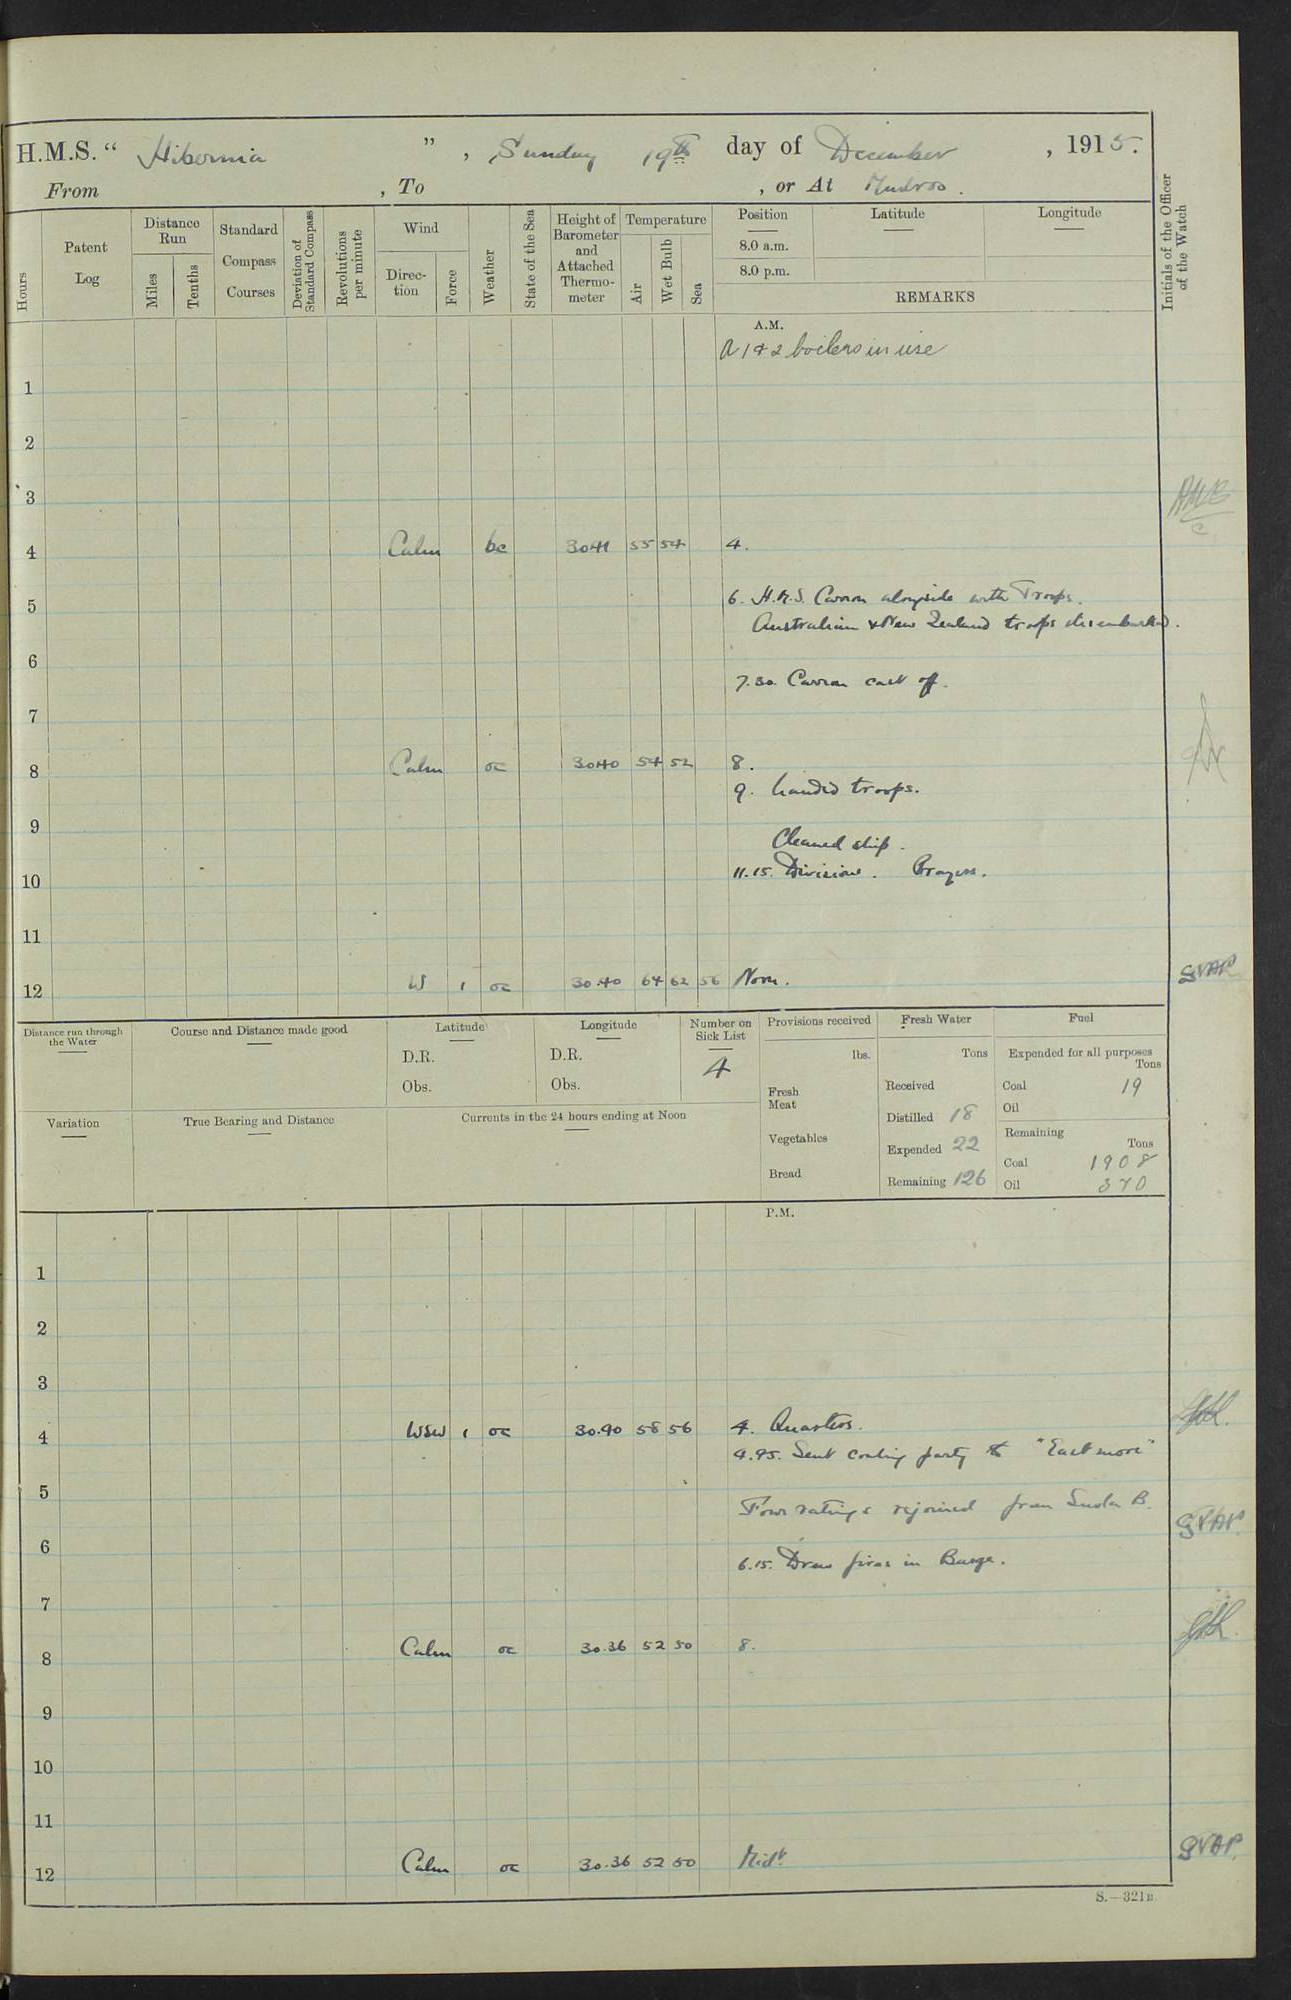 H.M.S. " Hibernia ", Sunday 19th day of December, 1915.
From , To , or At Mudros.
Hours
Patent Log
Distance Run
Miles
Tenths
Standard Compass Courses
Deviation of Standard Compass
Revolutions per minute
Wind
Direc-tion
Force
Weather
State of the Sea
Height of Barometer and Attached Thermo-meter
Temperature
Air
Wet Bulb
Sea
Position
8.0 a.m.
8.0 p.m.
Latitude
Longitude
REMARKS
Initials of the Officer of the Watch
A.M.
A 1 & 2 boilers in use
1
2
3
4 Calm bc 3041 55 54 4.
5 6. H.M.S. Carron alongside with Troops.
Australian & New Zealand troops disembarked.
6
7.30 Carron cast off.
7
8 Calm oc 3040 54 52 8.
9. Landed troops.
9
Cleaned ship.
10 11.15. Divisions. Prayers.
11
12 W 1 oc 30.40 64 62 56 Noon.
Distance run through the Water
Course and Distance made good
Latitude
D.R.
Obs.
Longitude
D.R.
Obs.
Number on Sick List
4
Provisions received
lbs.
Fresh Meat
Vegetables
Bread
Fresh Water
Tons
Received
Distilled 18
Expended 22
Remaining 126
Fuel
Expended for all purposes
Tons
Coal 19
Oil
Remaining
Tons
Coal 1908
Oil 370
Variation
True Bearing and Distance
Currents in the 24 hours ending at Noon
P.M.
1
2
3
4 WSW 1 oc 30.40 58 56 4. Quarters.
4.45. Sent coaling party to "Eastmore"
5
Four ratings rejoined from Suvla B.
6
6.15. Drew fires in Barge.
7
8 Calm oc 30.36 52 50 8.
9
10
11
12 Calm oc 30.36 52 50 Midt.
S.—321B